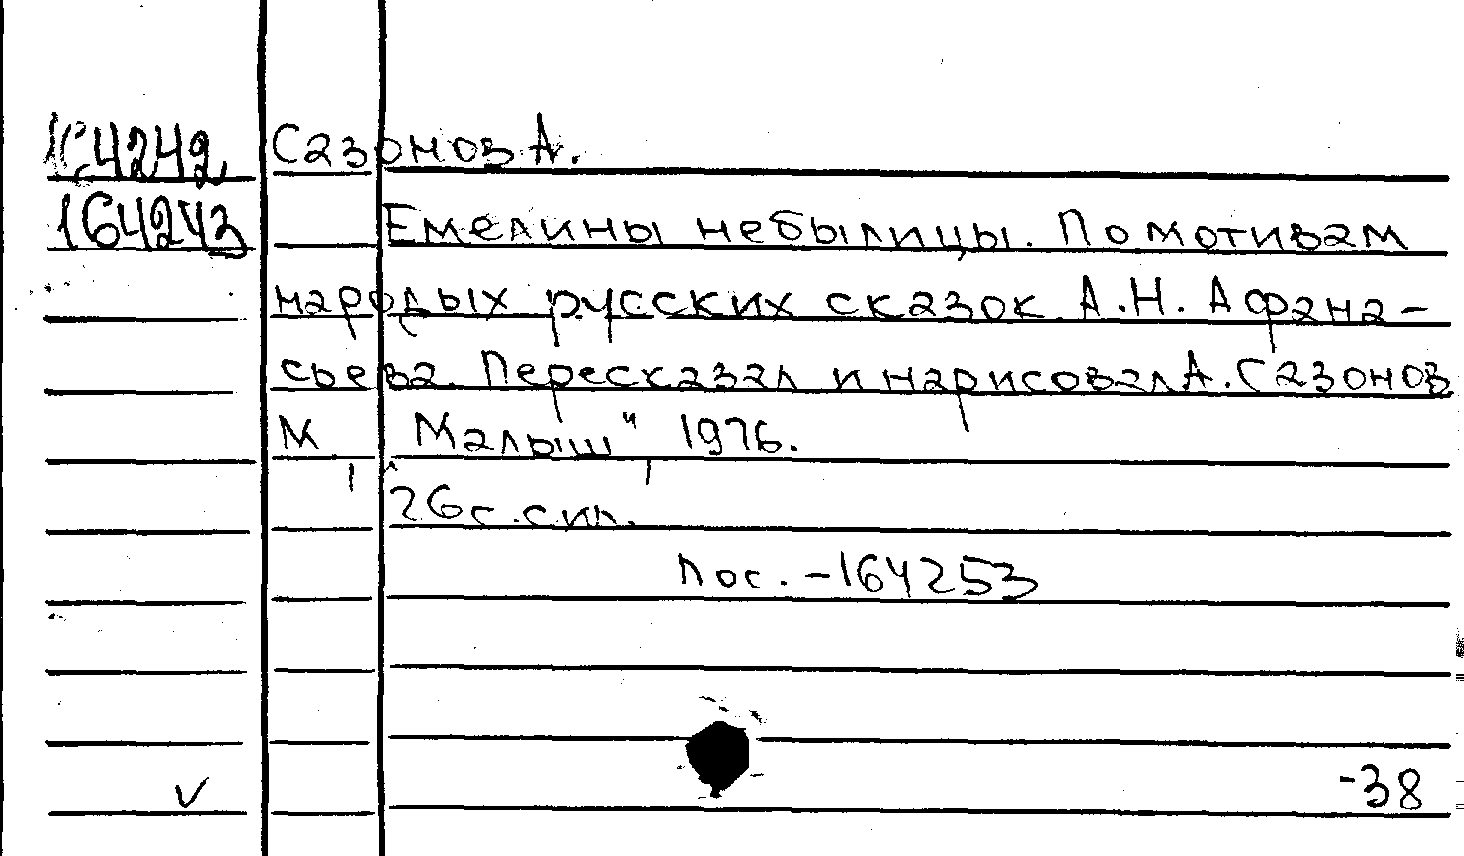 164242 Сазонов А.
164243 Емелины небылицы. По мотивам
народых русских сказок А.Н. Афана-
сьева. Пересказал и нарисовал А. Сазонов
М, „Малыш", 1976.
26с. с ил.
Пос. -164253
-38